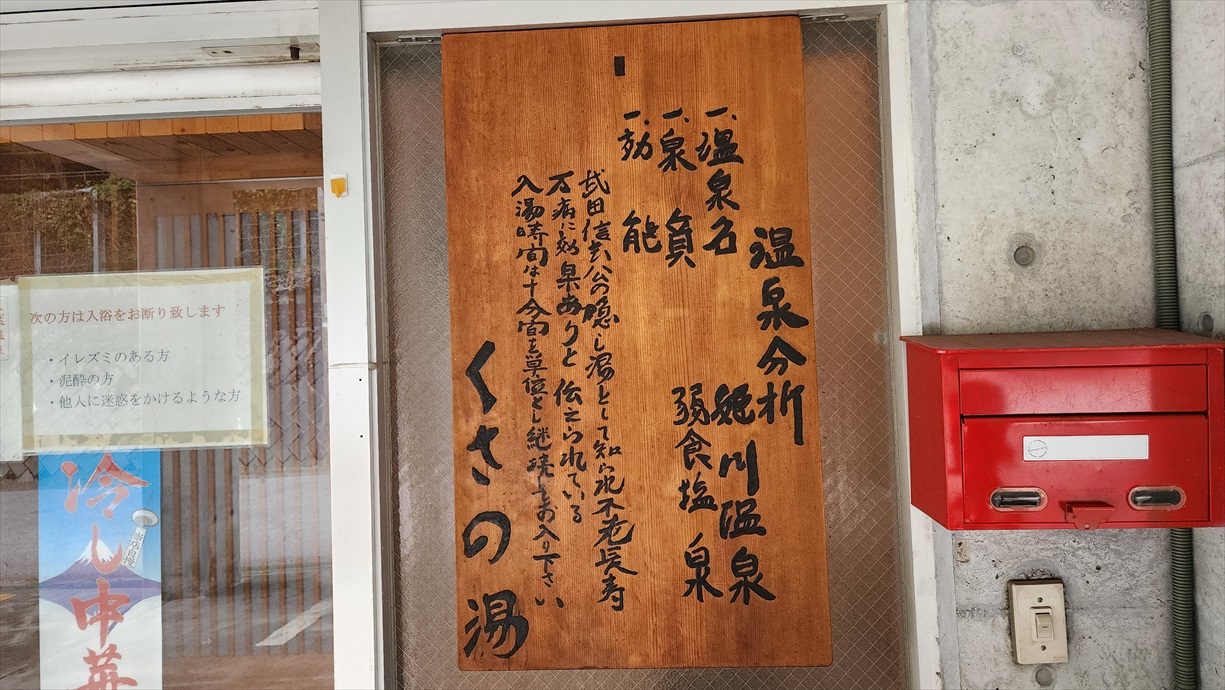 温泉分析
一、温泉名 鯢川温泉
一、泉質 弱食塩泉
一、効能
武田信玄公の隠し湯として知られ不老長寿
万病に効果ありと伝えられている
入湯時間は十分間を単位とし継続してお入り下さい
くさの湯
次の方は入浴をお断り致します
・イレズミのある方
・泥酔の方
・他人に迷惑をかけるような方
冷し中華
当店自慢